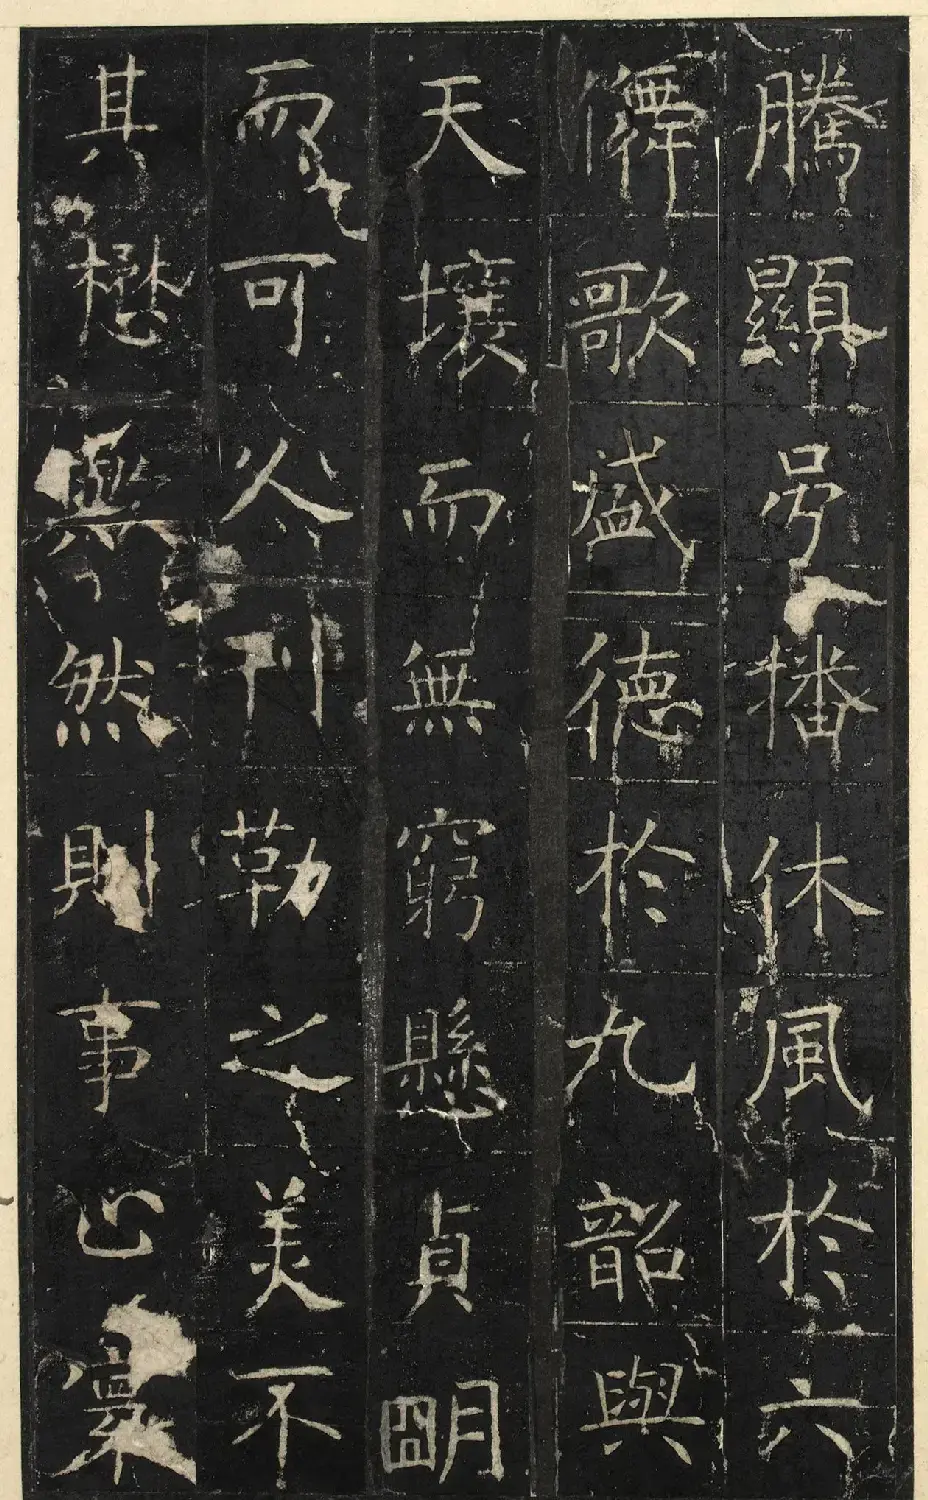 騰顯号播休風於六
儛歌盛德於九韶與
天壤而無窮懸貞朙
而可久刊勒之美不
其懋與然則事止稟